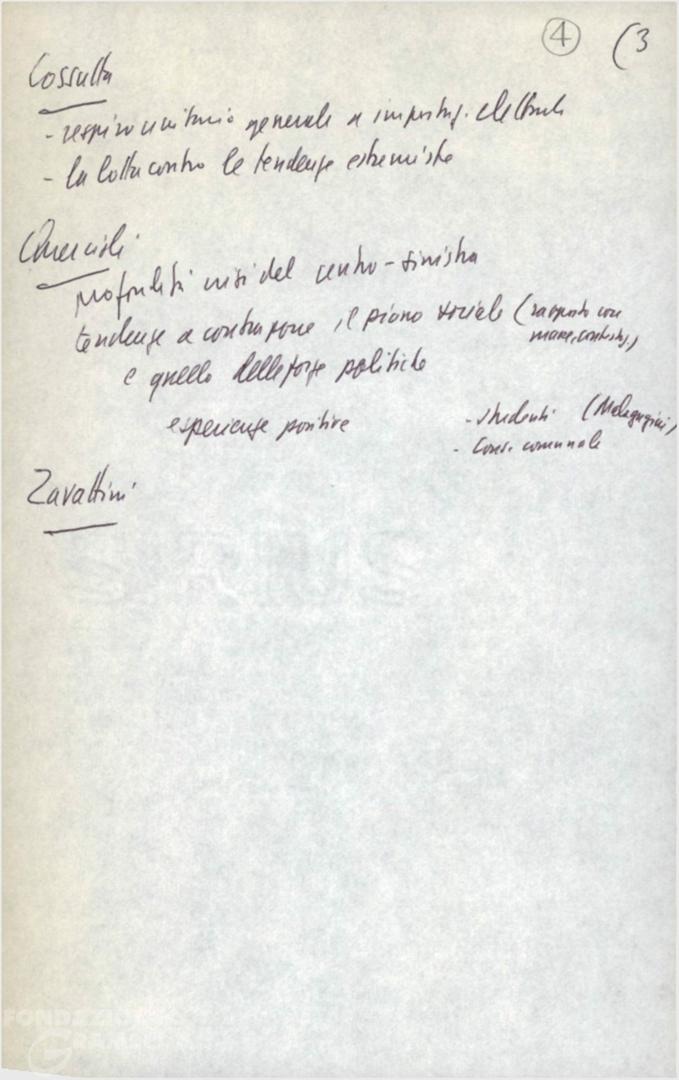 ④ (3
Cossutta
- respiro unitario generale a impostaz. elettorale
- la lotta contro le tendenze estremiste
Quercioli
profondità crisi del centro-sinistra
tendenze a contrapporre il piano sociale (rapporto con
masse, contestaz.)
e quello delle forze politiche
esperienze positive
- studenti (Malagugini)
- Cons. comunale
Zavattini
FONDAZIONE
GRAMSCI